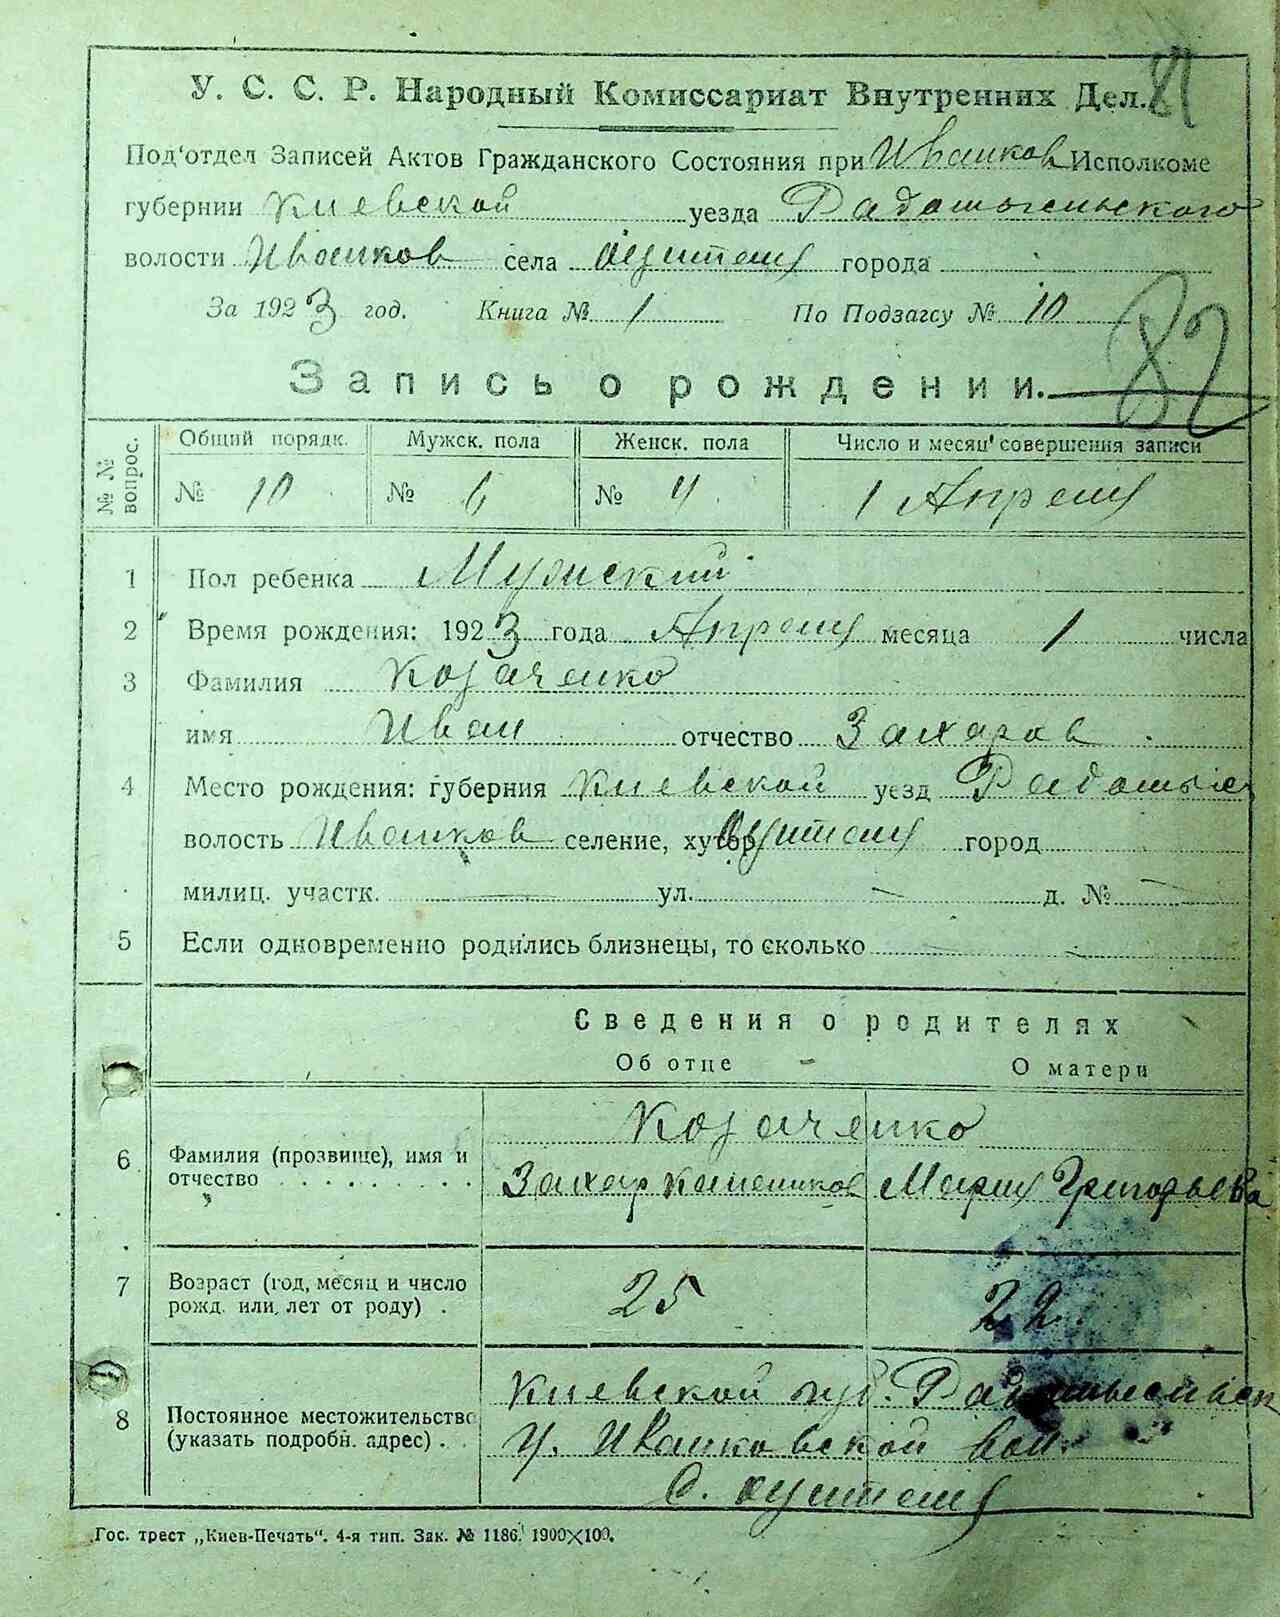 У. С. С. Р. Народный Комиссариат Внутренних Дел. 81
Под'отдел Записей Актов Гражданского Состояния при Иванков Исполкоме
губернии Киевской уезда Радомысльского
волости Иванков села города
За 1923 год. Книга № 1 По Подзагсу № 10
82
Запись о рождении.
№ № вопрос. Общий порядк. Мужск. пола Женск. пола Число и месяц совершения записи
№ 10 № 6 № 4 1 Апреля
1 Пол ребенка Мужский
2 Время рождения: 1923 года Апреля месяца 1 числа
3 Фамилия Козаченко
имя Иван отчество Захаров
4 Место рождения: губерния Киевской уезд Радомысл
волость Иванков селение, хутор город
милиц. участк. — ул. — д. № —
5 Если одновременно родились близнецы, то сколько —
Сведения о родителях
Об отце — О матери
Козаченко
6 Фамилия (прозвище), имя и отчество . . . . . . . . . Захар Мария Григорьева
7 Возраст (год, месяц и число рожд. или лет от роду) . 25 22
8 Постоянное местожительство (указать подробн. адрес) . . Киевской губ. Радомысльск
у. Иванковской вол.
с.
Гос. трест „Киев-Печать“. 4-я тип. Зак. № 1186. 1900×100.